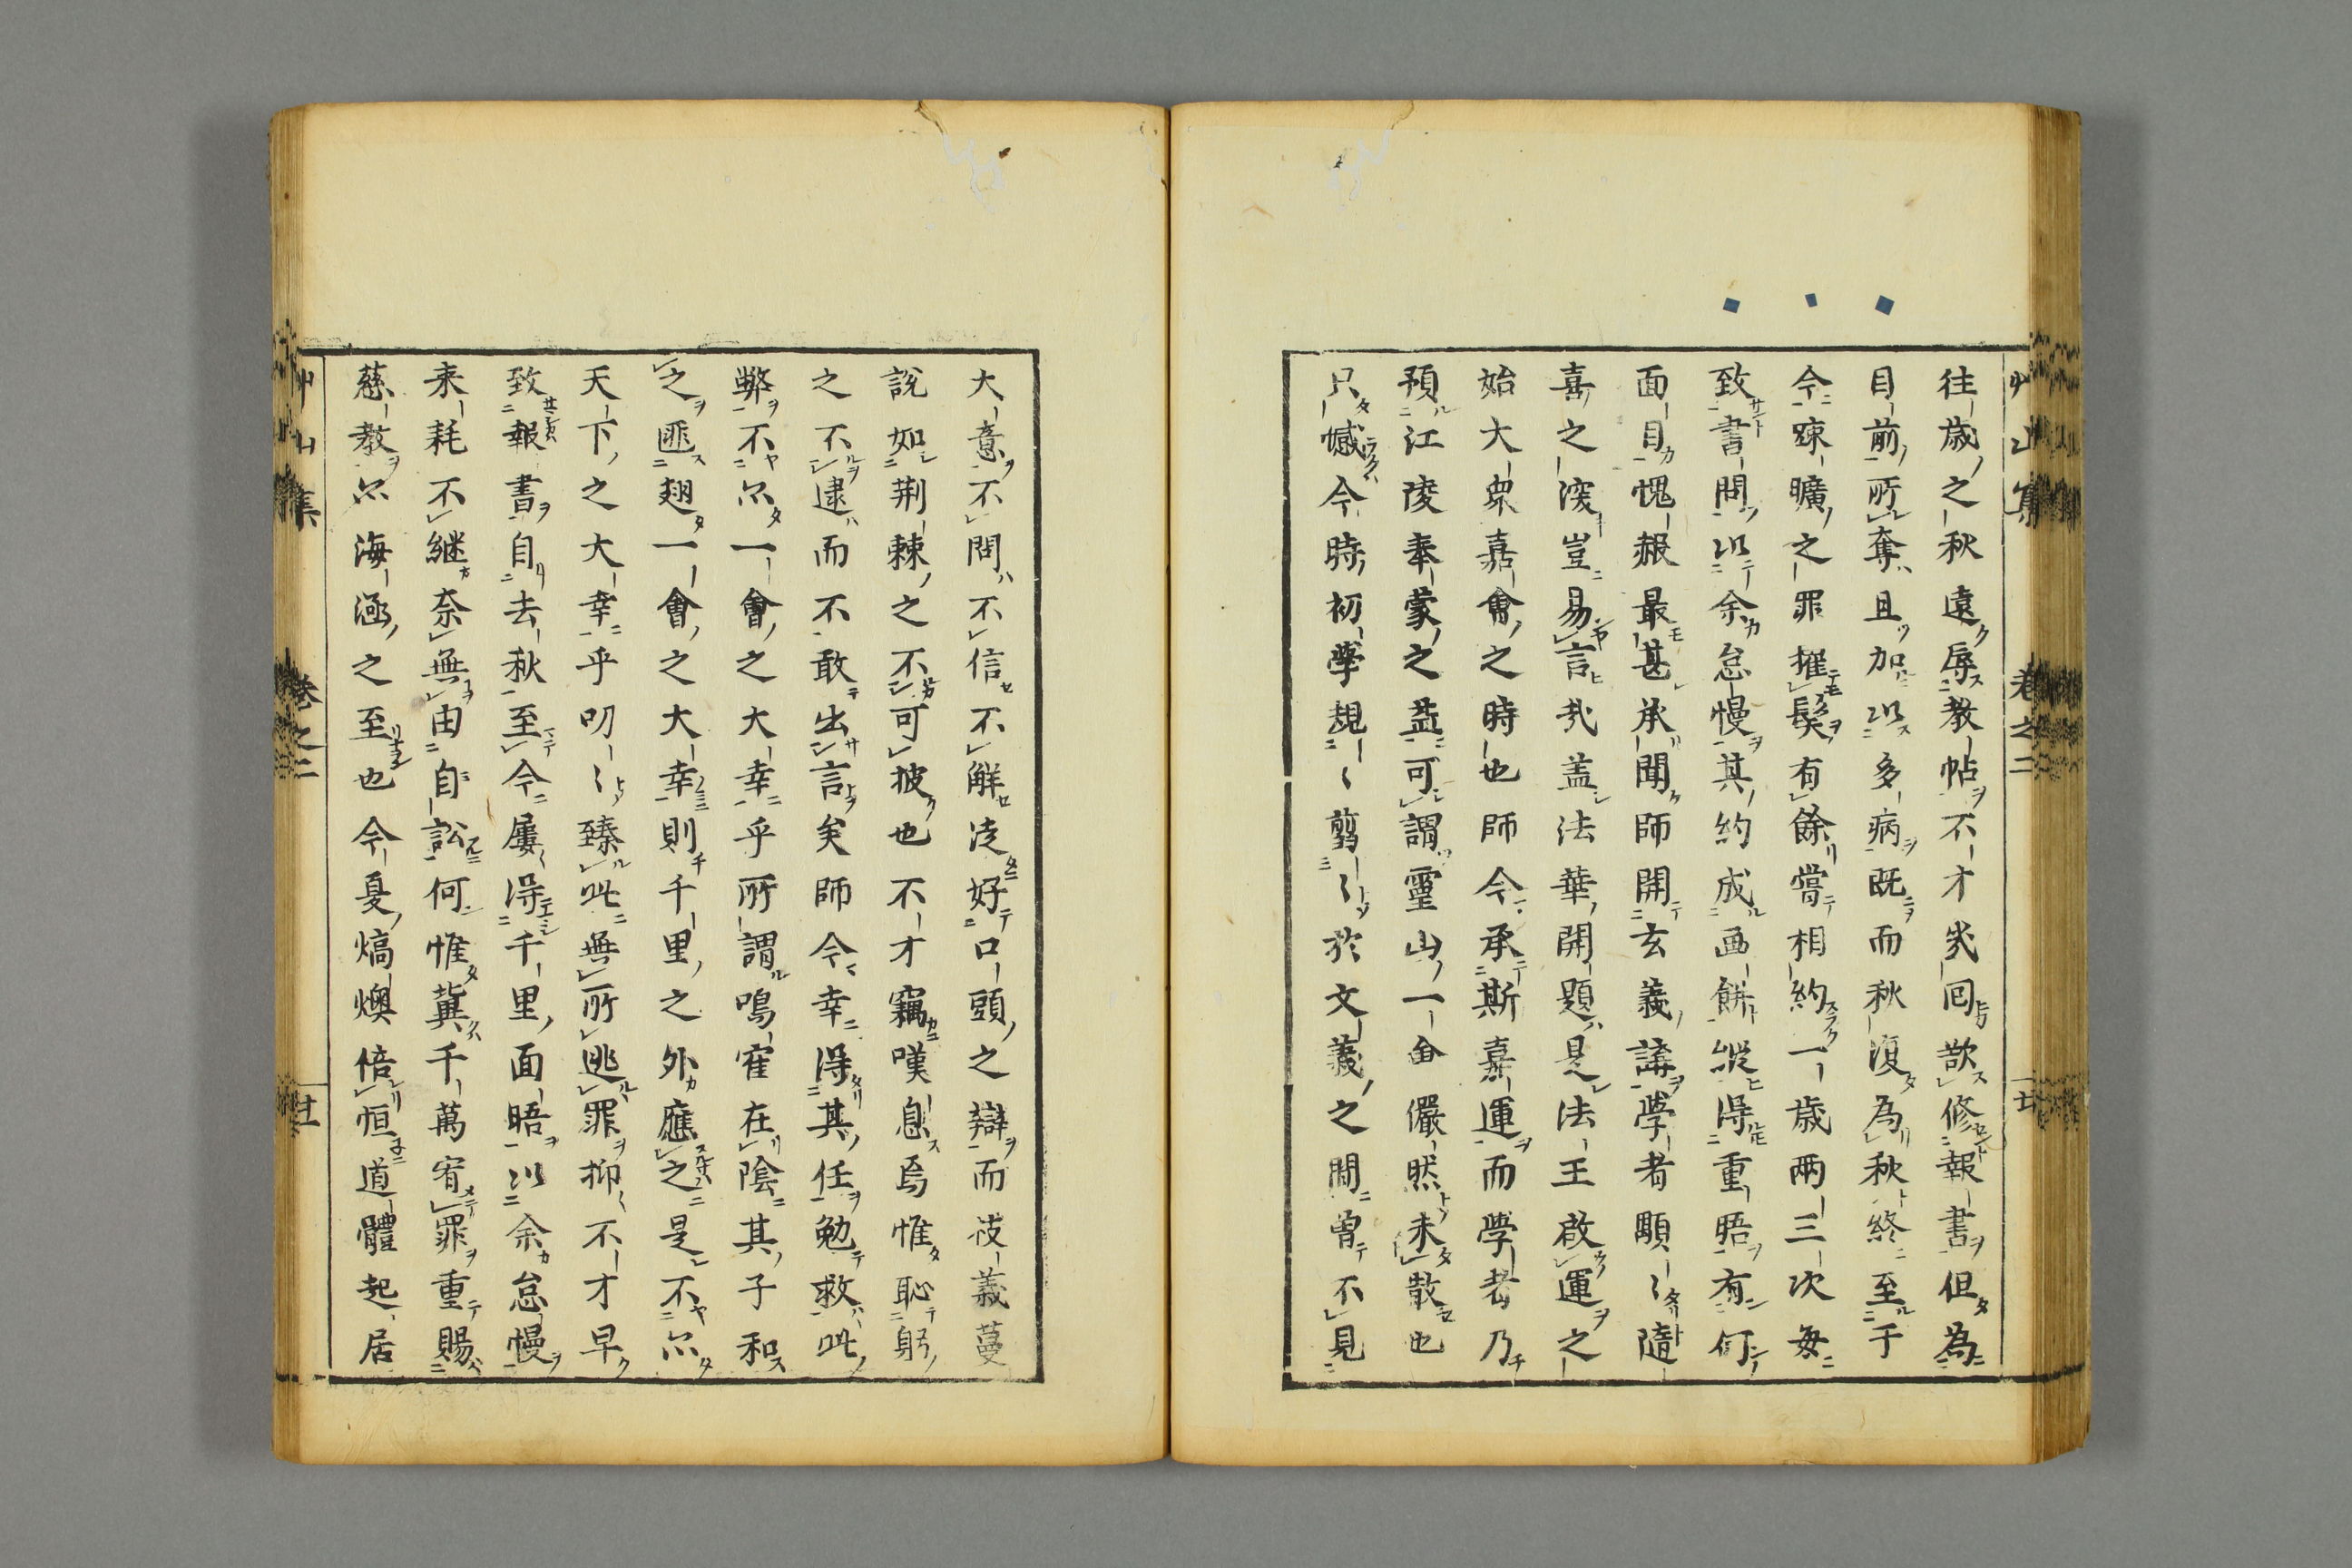 艸山集 卷之二
往歳之秋遠辱教帖不才幾回欲修報書但為
目前所奪且加以多病既而秋復為秋終至于
今踈曠之罪擢髮有餘嘗相約一歳兩三次每
致書問以余怠慢其約成画餅縱得重晤有何
面目愧赧最甚承聞師開玄義講學者顒〻隨
喜之深豈易言哉盖法華開題是法王啟運之
始大衆嘉會之時也師今承斯嘉運而學者乃
預江陵奉蒙之益可謂靈山一會儼然未散也
只憾今時初學規〻剪〻於文義之間曾不見
大意不問不信不解徒好口頭之辯而枝義蔓
說如荆棘之不可披也不才竊嘆息焉惟恥躬
之不逮而不敢出言矣師今幸得其任勉救此
弊不尓一會之大幸乎所謂鳴寉在陰其子和
之匪翅一會之大幸則千里之外應之是不尓
天下之大幸乎叨〻臻此無所逃罪抑不才早
致報書自去秋至今屢得千里面晤以余怠慢
来耗不継奈無由自訟何惟冀千萬宥罪重賜
慈教尓海涵之至也今夏熇燠倍恒道體起居
艸山集 卷之二